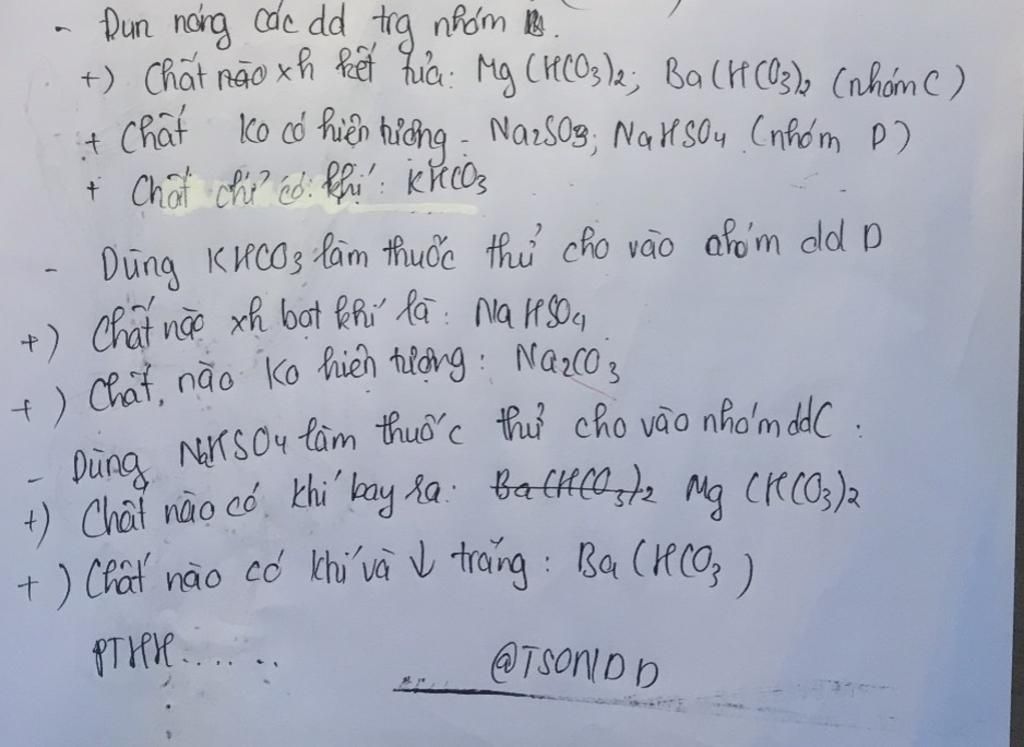 - Đun nóng các dd trg nhóm B.
+) Chất nào xh kết tủa: Mg(HCO3)2; Ba(HCO3)2 (nhóm C)
+ Chất ko có hiện tượng - Na2SO3; NaHSO4 (nhóm D)
+ Chất chỉ có khí: KHCO3
- Dùng KHCO3 làm thuốc thử cho vào nhóm dd D
+) Chất nào xh bọt khí là: NaHSO4
+) Chất, nào ko hiện tượng: Na2CO3
- Dùng NaHSO4 làm thuốc thử cho vào nhóm ddC.
+) Chất nào có khí bay ra: Ba(HCO3)2 Mg(HCO3)2
+) Chất nào có khí và ↓ trắng: Ba(HCO3)
PTHH.......
@TSON1DD